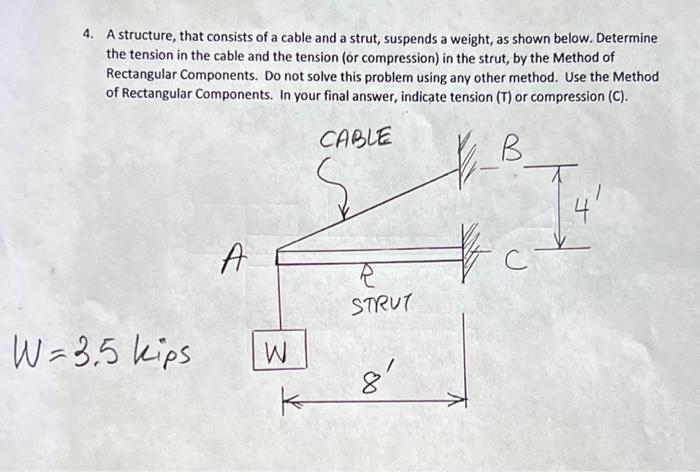 4. A structure, that consists of a cable and a strut, suspends a weight, as shown below. Determine
the tension in the cable and the tension (or compression) in the strut, by the Method of
Rectangular Components. Do not solve this problem using any other method. Use the Method
of Rectangular Components. In your final answer, indicate tension (T) or compression (C).
CABLE
B
4'
A
C
STRUT
W=3.5 kips
W
8'